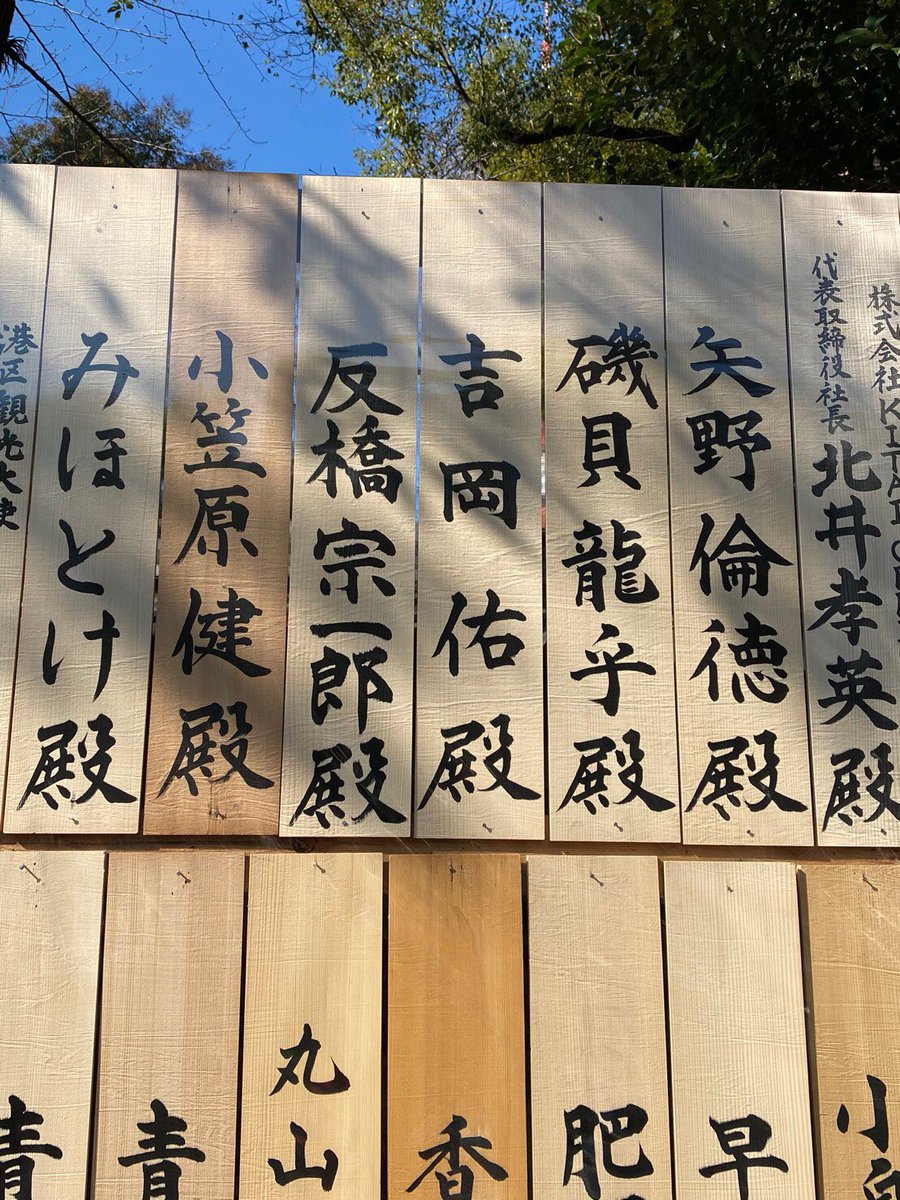 株式会社KITAI
代表取締役社長 北井孝英殿
矢野倫徳殿
磯貝龍乎殿
吉岡佑殿
反橋宗一郎殿
小笠原健殿
みほとけ殿
港区観光大使
小
早
肥
香
丸山
青
青